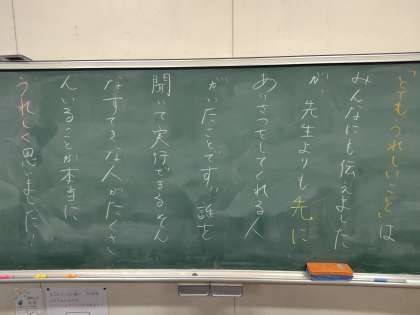 「とてもうれしいこと」は
みんなにも伝えました
が、先生よりも先に
あいさつをしてくれる人
がいたことです!!話を
聞いて実行できるそん
なすてきな人がたくさ
んいることが本当に
うれしく思いました!